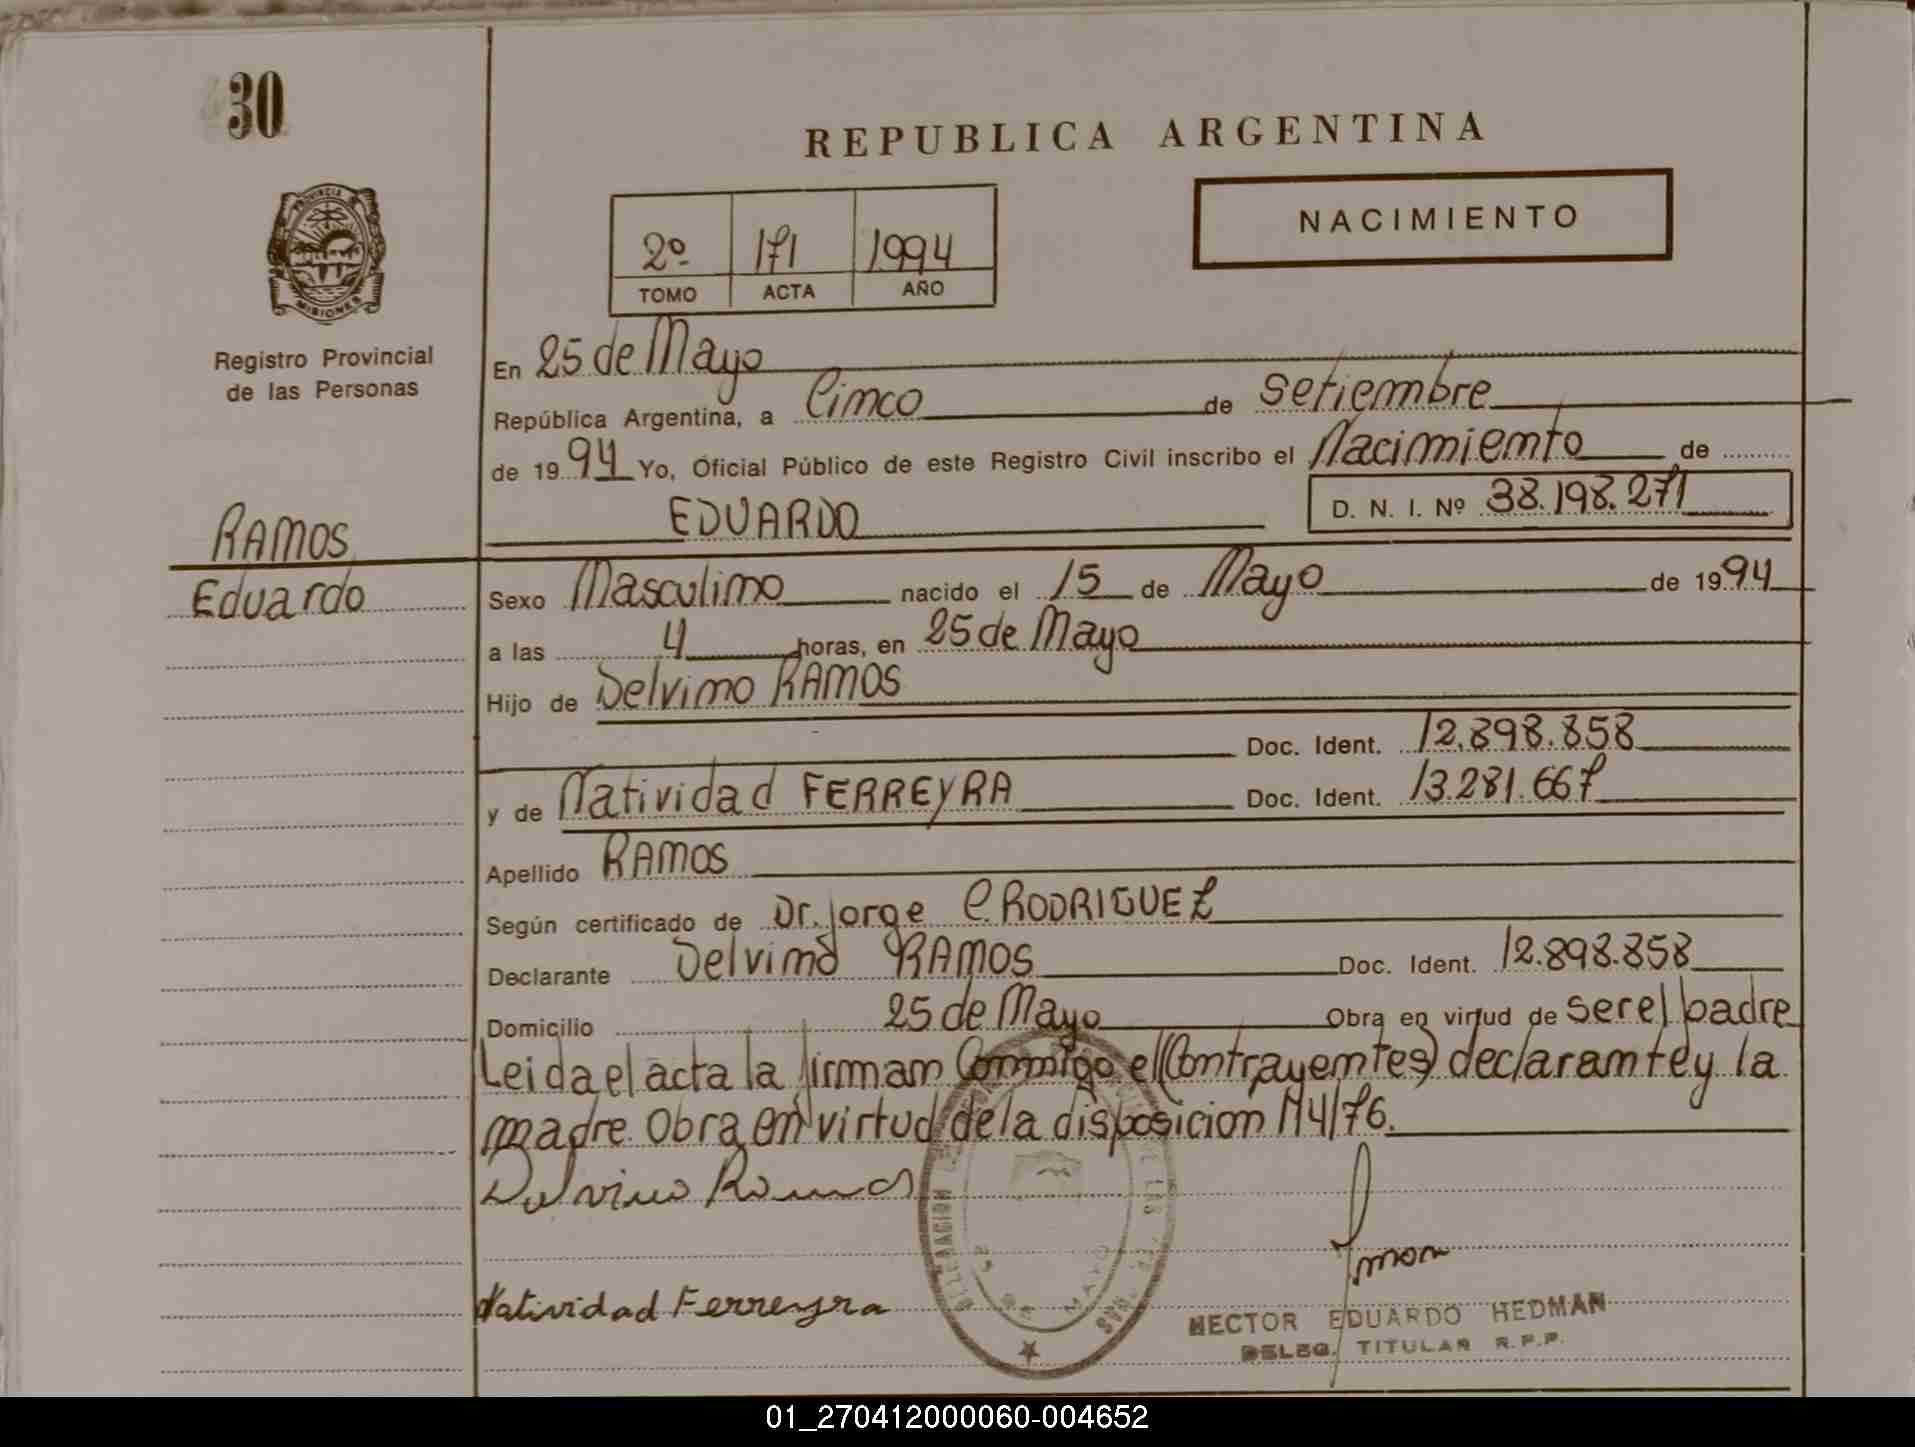 30
REPUBLICA ARGENTINA
NACIMIENTO
2º 171 1994
TOMO ACTA AÑO
PROVINCIA
MISIONES
Registro Provincial
de las Personas
En 25 de Mayo
República Argentina, a Cinco de Setiembre
de 1994 Yo, Oficial Público de este Registro Civil inscribo el Nacimiento de
EDUARDO D. N. I. Nº 38.198.271
RAMOS
Eduardo
Sexo Masculino nacido el 15 de Mayo de 1994
a las 4 horas, en 25 de Mayo
Hijo de Delvino RAMOS
Doc. Ident. 12.898.858
y de Natividad FERREYRA Doc. Ident. 13.281.667
Apellido RAMOS
Según certificado de Dr. Jorge C. RODRIGUEZ
Declarante Delvino RAMOS Doc. Ident. 12.898.858
Domicilio 25 de Mayo Obra en virtud de ser el padre
Leida el acta la firman Conmigo el (Contrayentes) declarante y la
madre Obra en virtud de la disposicion Nº 4/76.
Delvino Ramos
Natividad Ferreyra
DELEGACION DE LAS PERSONAS
25 DE MAYO
HECTOR EDUARDO HEDMAN
DELEG. TITULAR R.P.P.
01_270412000060-004652